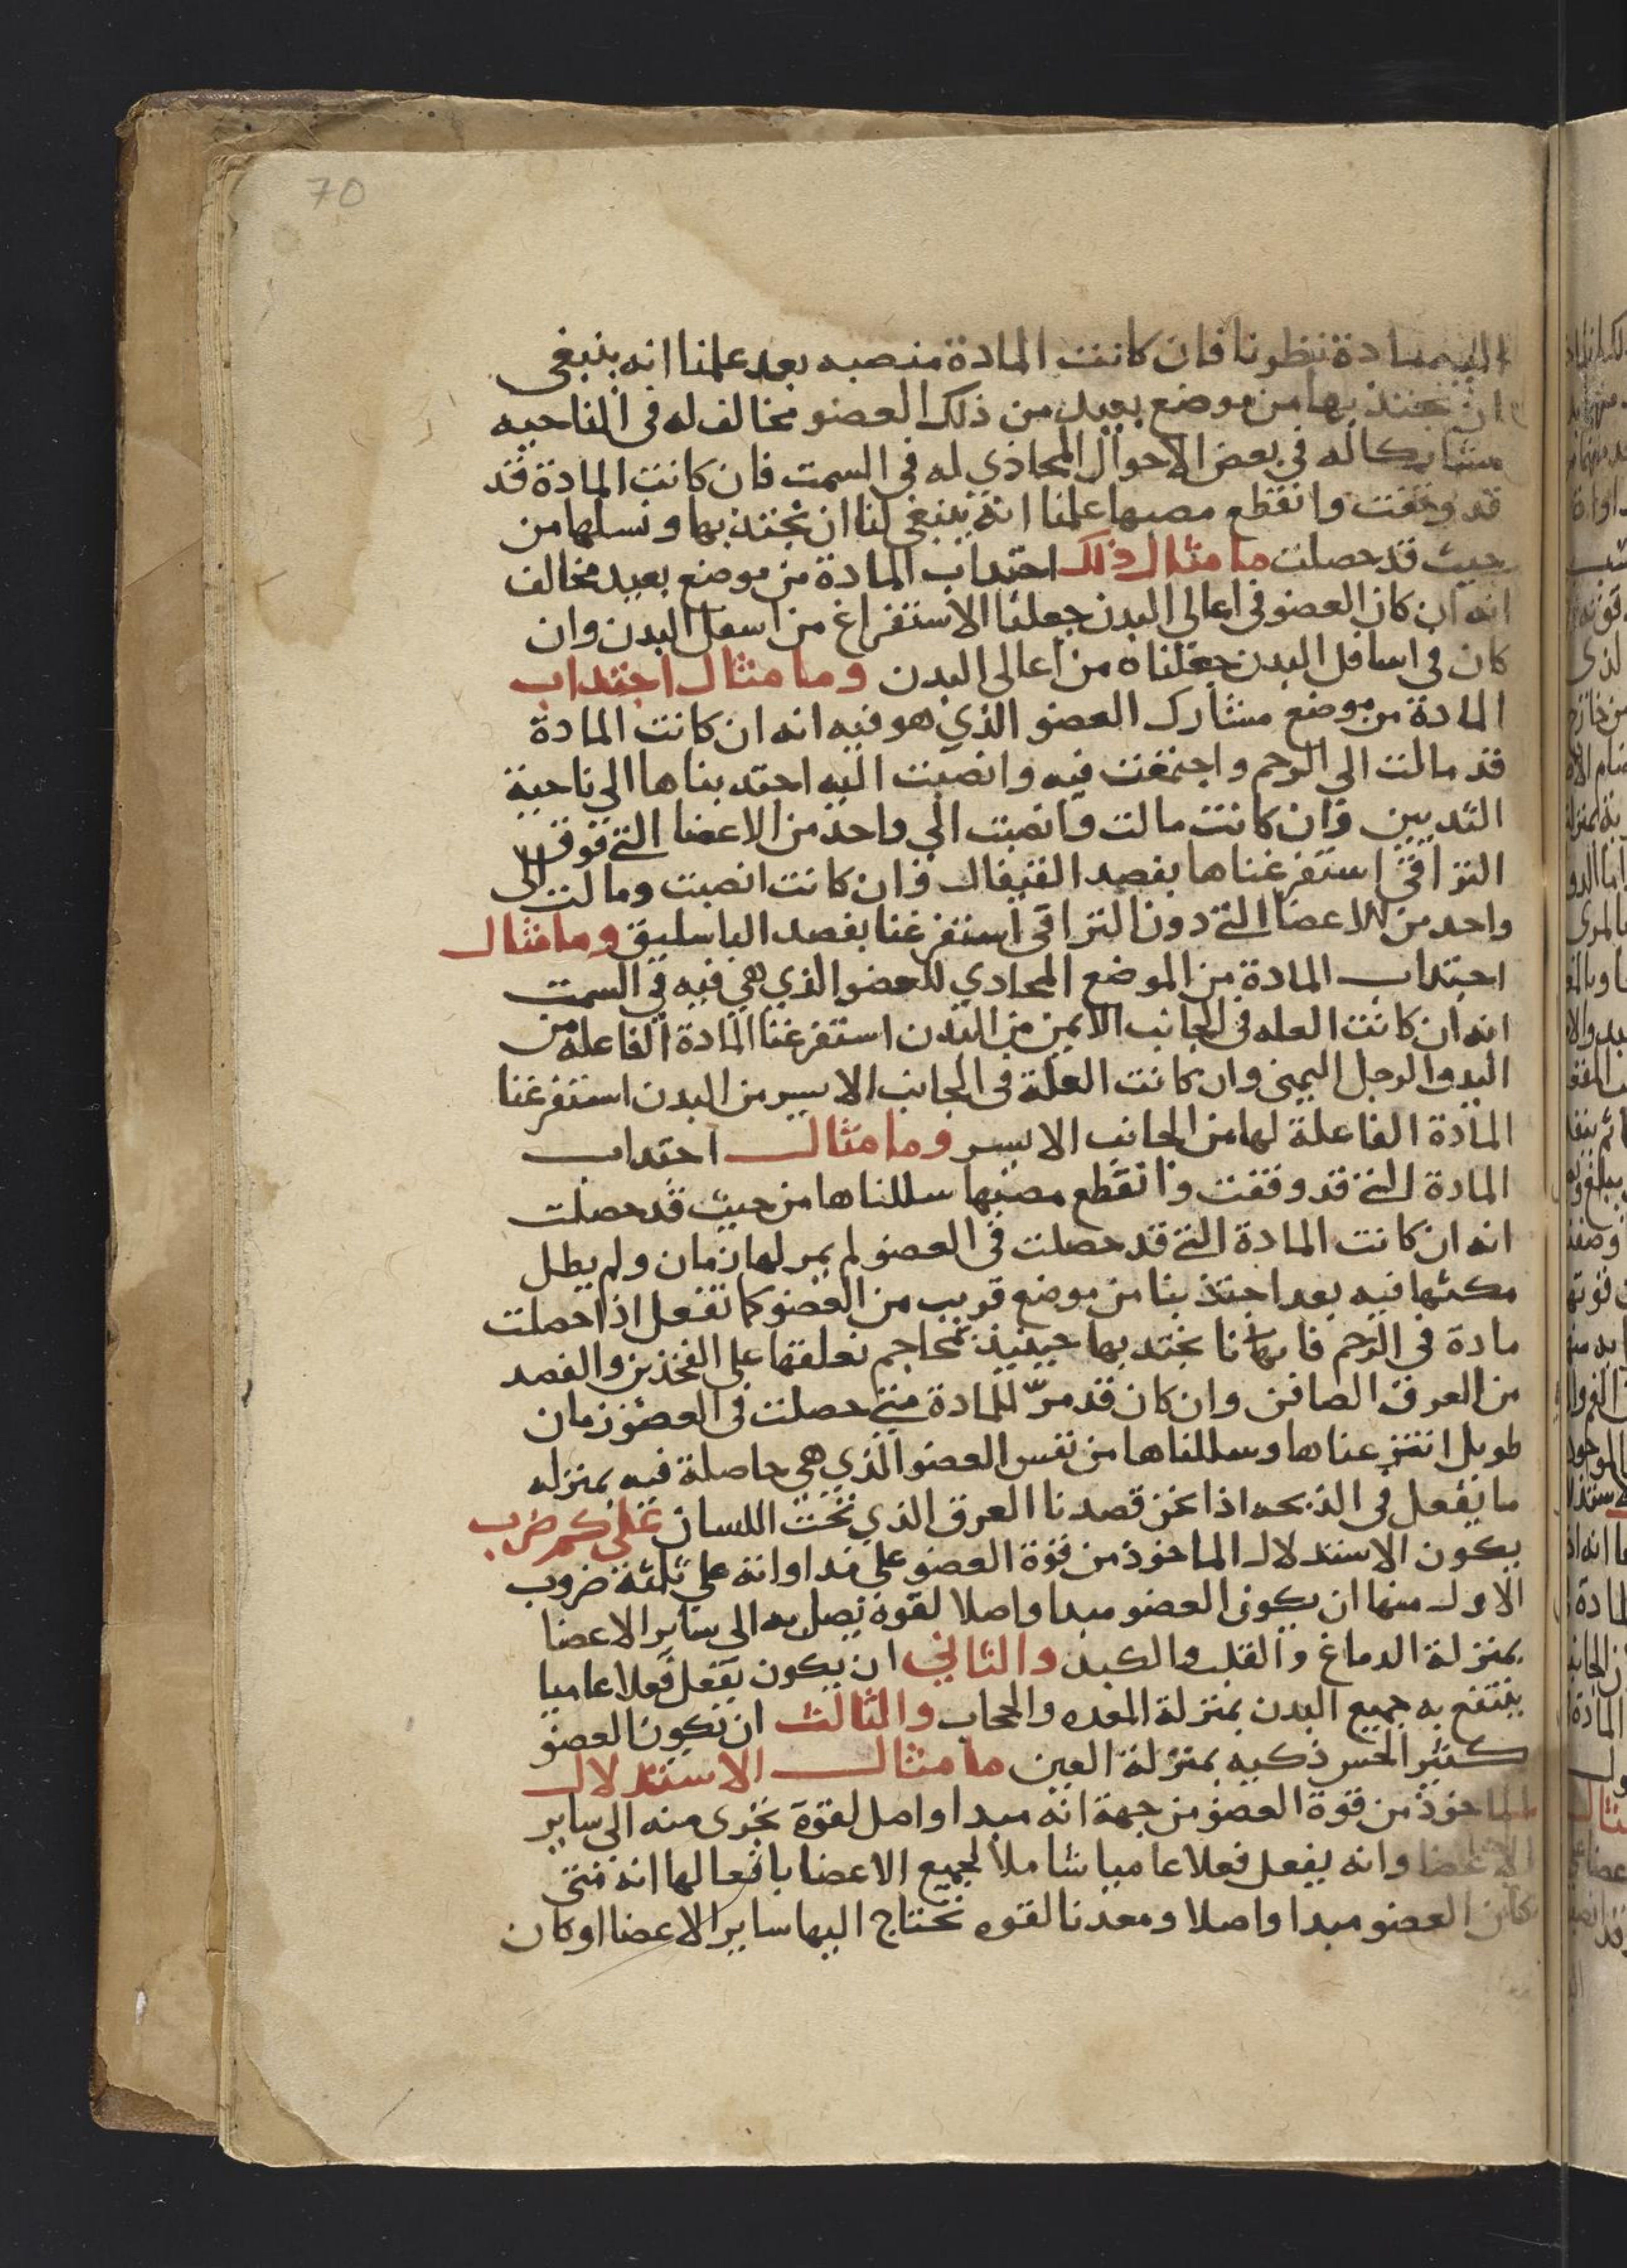 70
اليه مادة نظرنا فان كانت المادة منصبه بعد علمنا انه ينبغى
ان نجتذبها من موضع بعيد من ذلك العضو مخالف له فى الناحيه
مشاركا له في بعض الاحوال المحادي له فى السمت فان كانت المادة قد
قد وقفت وانقطع مصبها علمنا انه ينبغي لنا ان نجتذبها ونسلها من
حيث قد حصلت ما مثال ذلك احتداب المادة من موضع بعيد مخالف
انه ان كان العضو فى اعالي البدن جعلنا الاستفراغ من اسفل البدن وان
كان في اسافل البدن جعلناه من اعالى البدن وما مثال اجتداب
المادة من موضع مشارك العضو الذي هو فيه انه ان كانت المادة
قد مالت الي الرحم واجتمعت فيه وانصبت اليه احتدبناها الي ناحية
الثديين وان كانت مالت وانصبت الي واحد من الاعضا التي فوق
التراقى استفرغناها بفصد القيفال وان كانت انصبت ومالت الى
واحد من الاعضا التي دون التراقى استفرغنا بفصد الباسليق وما مثال
احتداب المادة من الموضع المحادي للعضو الذي هي فيه في السمت
انه ان كانت العله فى الجانب الايمن من البدن استفرغنا المادة الفاعله من
اليد والرجل اليمنى وان كانت العلة فى الجانب الايسر من البدن استفرغنا
المادة الفاعلة لها من الجانب الايسر وما مثال احتداب
المادة التي قد وقفت وانقطع مصبها سللناها من حيث قد حصلت
انه ان كانت المادة التي قد حصلت في العضو لم يمر لها زمان ولم يطل
مكثها فيه بعد اجتذبنا من موضع قريب من العضو كما نفعل اذا حصلت
مادة فى الرحم فاننا نجتدبها حينيذ بمحاجم نعلقها على الفخذين والفصد
من العرق الصافن وان كان قد مرّ للمادة متى حصلت فى العضو زمان
طويل انتزعناها وسللناها من نفس العضو الذي هي حاصلة فيه بمنزله
ما نفعل في الذبحه اذا نحن قصدنا العرق الذي تحت اللسان على كم ضرب
يكون الاستدلال الماخوذ من قوة العضو على مداواته على ثلثة ضروب
الاول منها ان يكون العضو مبدا واصلا لقوة تصل به الى ساير الاعضا
بمنزلة الدماغ والقلب والكبد والثاني ان يكون يفعل فعلا عاميا
ينتفع به جميع البدن بمنزلة المعده والحجاب والثالث ان تكون العضو
كثير الحس ذكيه بمنزلة العين ما مثال الاستدلال
الماخوذ من قوة العضو من جهة انه مبدا واصل لقوة تجرى منه الى ساير
الاعضا وانه يفعل فعلا عاميا شاملا لجميع الاعضا بافعالها انه متى
كان العضو مبدا واصلا ومعدنا لقوه تحتاج اليها ساير الاعضا او كان